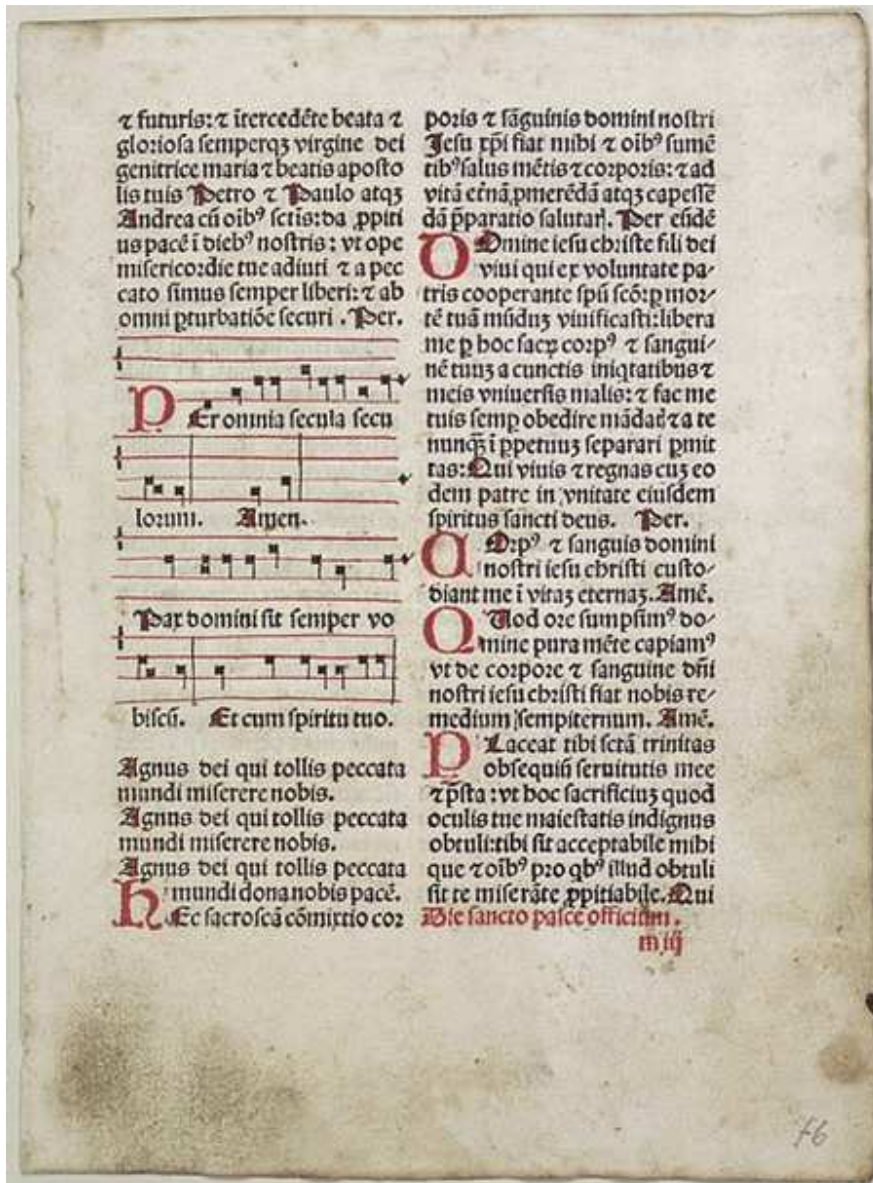 ⁊ futuris: ⁊ ītercedēte beata ⁊
gloriosa semperqꝫ virgine dei
genitrice maria ⁊ beatis aposto
lis tuis Petro ⁊ Paulo atqꝫ
Andrea cū oībꝰ sctīs: da ꝓpiti
us pacē ī diebꝰ nostris: vt ope
misericordie tue adiuti ⁊ a pec
cato simus semper liberi: ⁊ ab
omni ꝑturbatiōe securi. Per.
PEr omnia secula secu
lorum. Amen.
Pax domini sit semper vo
biscū. Et cum spiritu tuo.
Agnus dei qui tollis peccata
mundi miserere nobis.
Agnus dei qui tollis peccata
mundi miserere nobis.
Agnus dei qui tollis peccata
mundi dona nobis pacē.
HEc sacroscā cōmixtio cor
poris ⁊ sāguinis domini nostri
Jesu xp̄i fiat mihi ⁊ oībꝰ sumē
tibꝰ salus mētis ⁊ corporis: ⁊ ad
vitā et̄nā ꝓmerēdā atqꝫ capessē
dā p̄paratio salutarꝭ. Per eūdē
DOmine iesu christe fili dei
viui qui ex voluntate pa⸗
tris cooperante spū scō: ꝑ mor⸗
tē tuā mūduꝫ viuificasti: libera
me ꝑ hoc sacꝝ corpꝰ ⁊ sangui⸗
nē tuuꝫ a cunctis iniq̇tatibus ⁊
meis vniuersis malis: ⁊ fac me
tuis semꝑ obedire mādatꝭ ⁊ a te
nunq̄ꝫ ī ꝑpetuuꝫ separari ꝑmit
tas: Qui viuis ⁊ regnas cuꝫ eo
dem patre in vnitate eiusdem
spiritus sancti deus. Per.
COrpꝰ ⁊ sanguis domini
nostri iesu christi custo⸗
diant me ī vitaꝫ eternaꝫ. Amē.
QUod ore sumpsimꝰ do⸗
mine pura mēte capiamꝰ
vt de corpore ⁊ sanguine dn̄i
nostri iesu christi fiat nobis re⸗
medium sempiternum. Amē.
PLaceat tibi sctā trinitas
obsequiū seruitutis mee
⁊ p̄sta: vt hoc sacrificiuꝫ quod
oculis tue maiestatis indignus
obtuli: tibi sit acceptabile mihi
que ⁊ oībꝰ pro qbꝰ illud obtuli
sit te miserāte ꝓpitiabile. Qui
Die sancto pasce officium.
m iij
f6